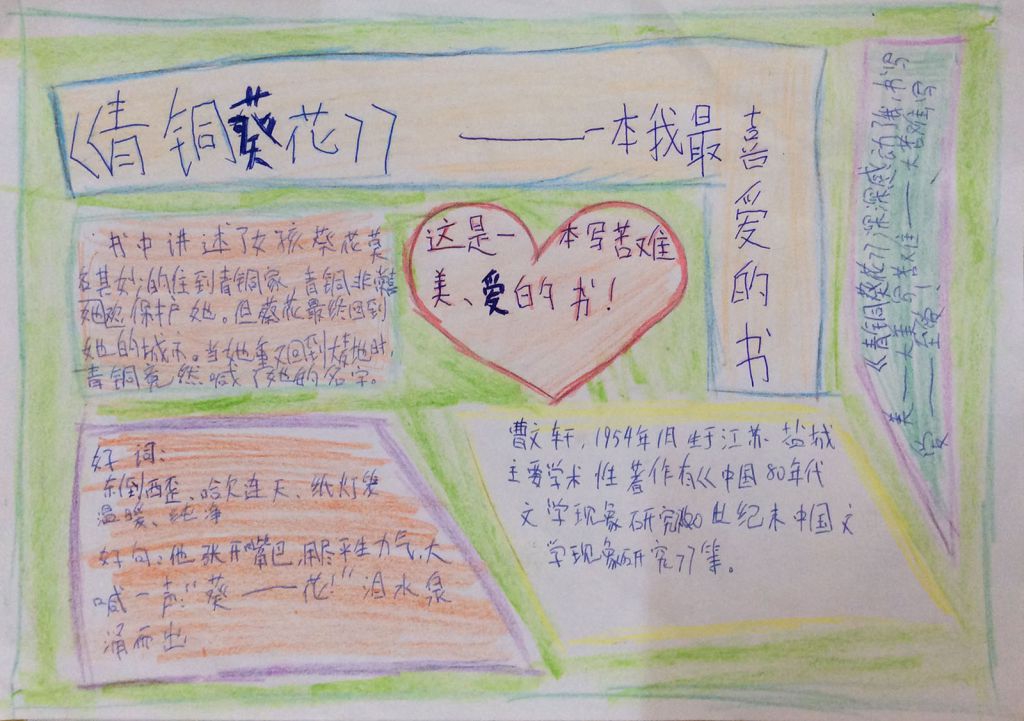 《青铜葵花》 ——一本我最喜爱的书
书中讲述了女孩葵花莫
名其妙的住到青铜家,青铜非常
保护她。但葵花最终回到
她的城市。当她重又回到大麦地时,
青铜竟然喊了她的名字。
这是一本写苦难
美、爱的书!
《青铜葵花》深深感动了我,书写
美——大美!写苦难——大苦难!写
爱——至爱!
好词:
东倒西歪、哈欠连天、纸灯笼
温暖、纯净
好句:他张开嘴巴,用尽平生力气,大
喊一声:“葵——花!”泪水泉
涌而出。
曹文轩,1954年1月生于江苏盐城
主要学术性著作有《中国80年代
文学现象研究》《20世纪末中国文
学现象研究》等。